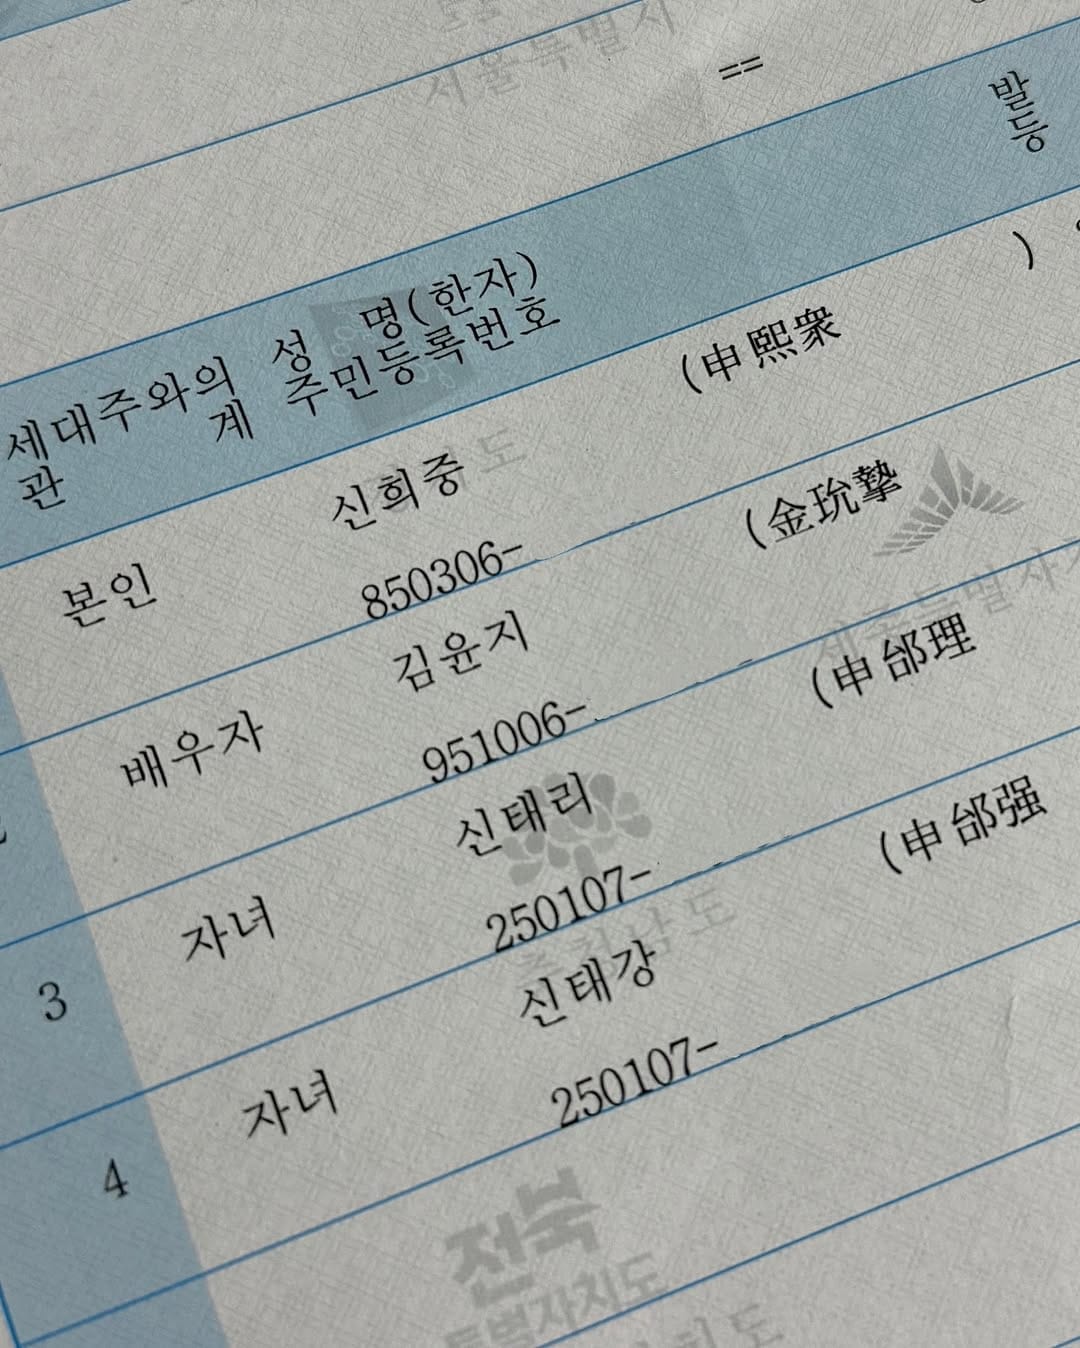 서울특별시
==
발
등
세대주와의 성 명(한자)
관 계 주민등록번호
)
본인 신희중 (申熙衆
850306-
배우자 김윤지 (金玧摯
951006-
세종특별자치
3 자녀 신태리 (申邰理
250107-
충청남도
4 자녀 신태강 (申邰强
250107-
전북
특별자치도